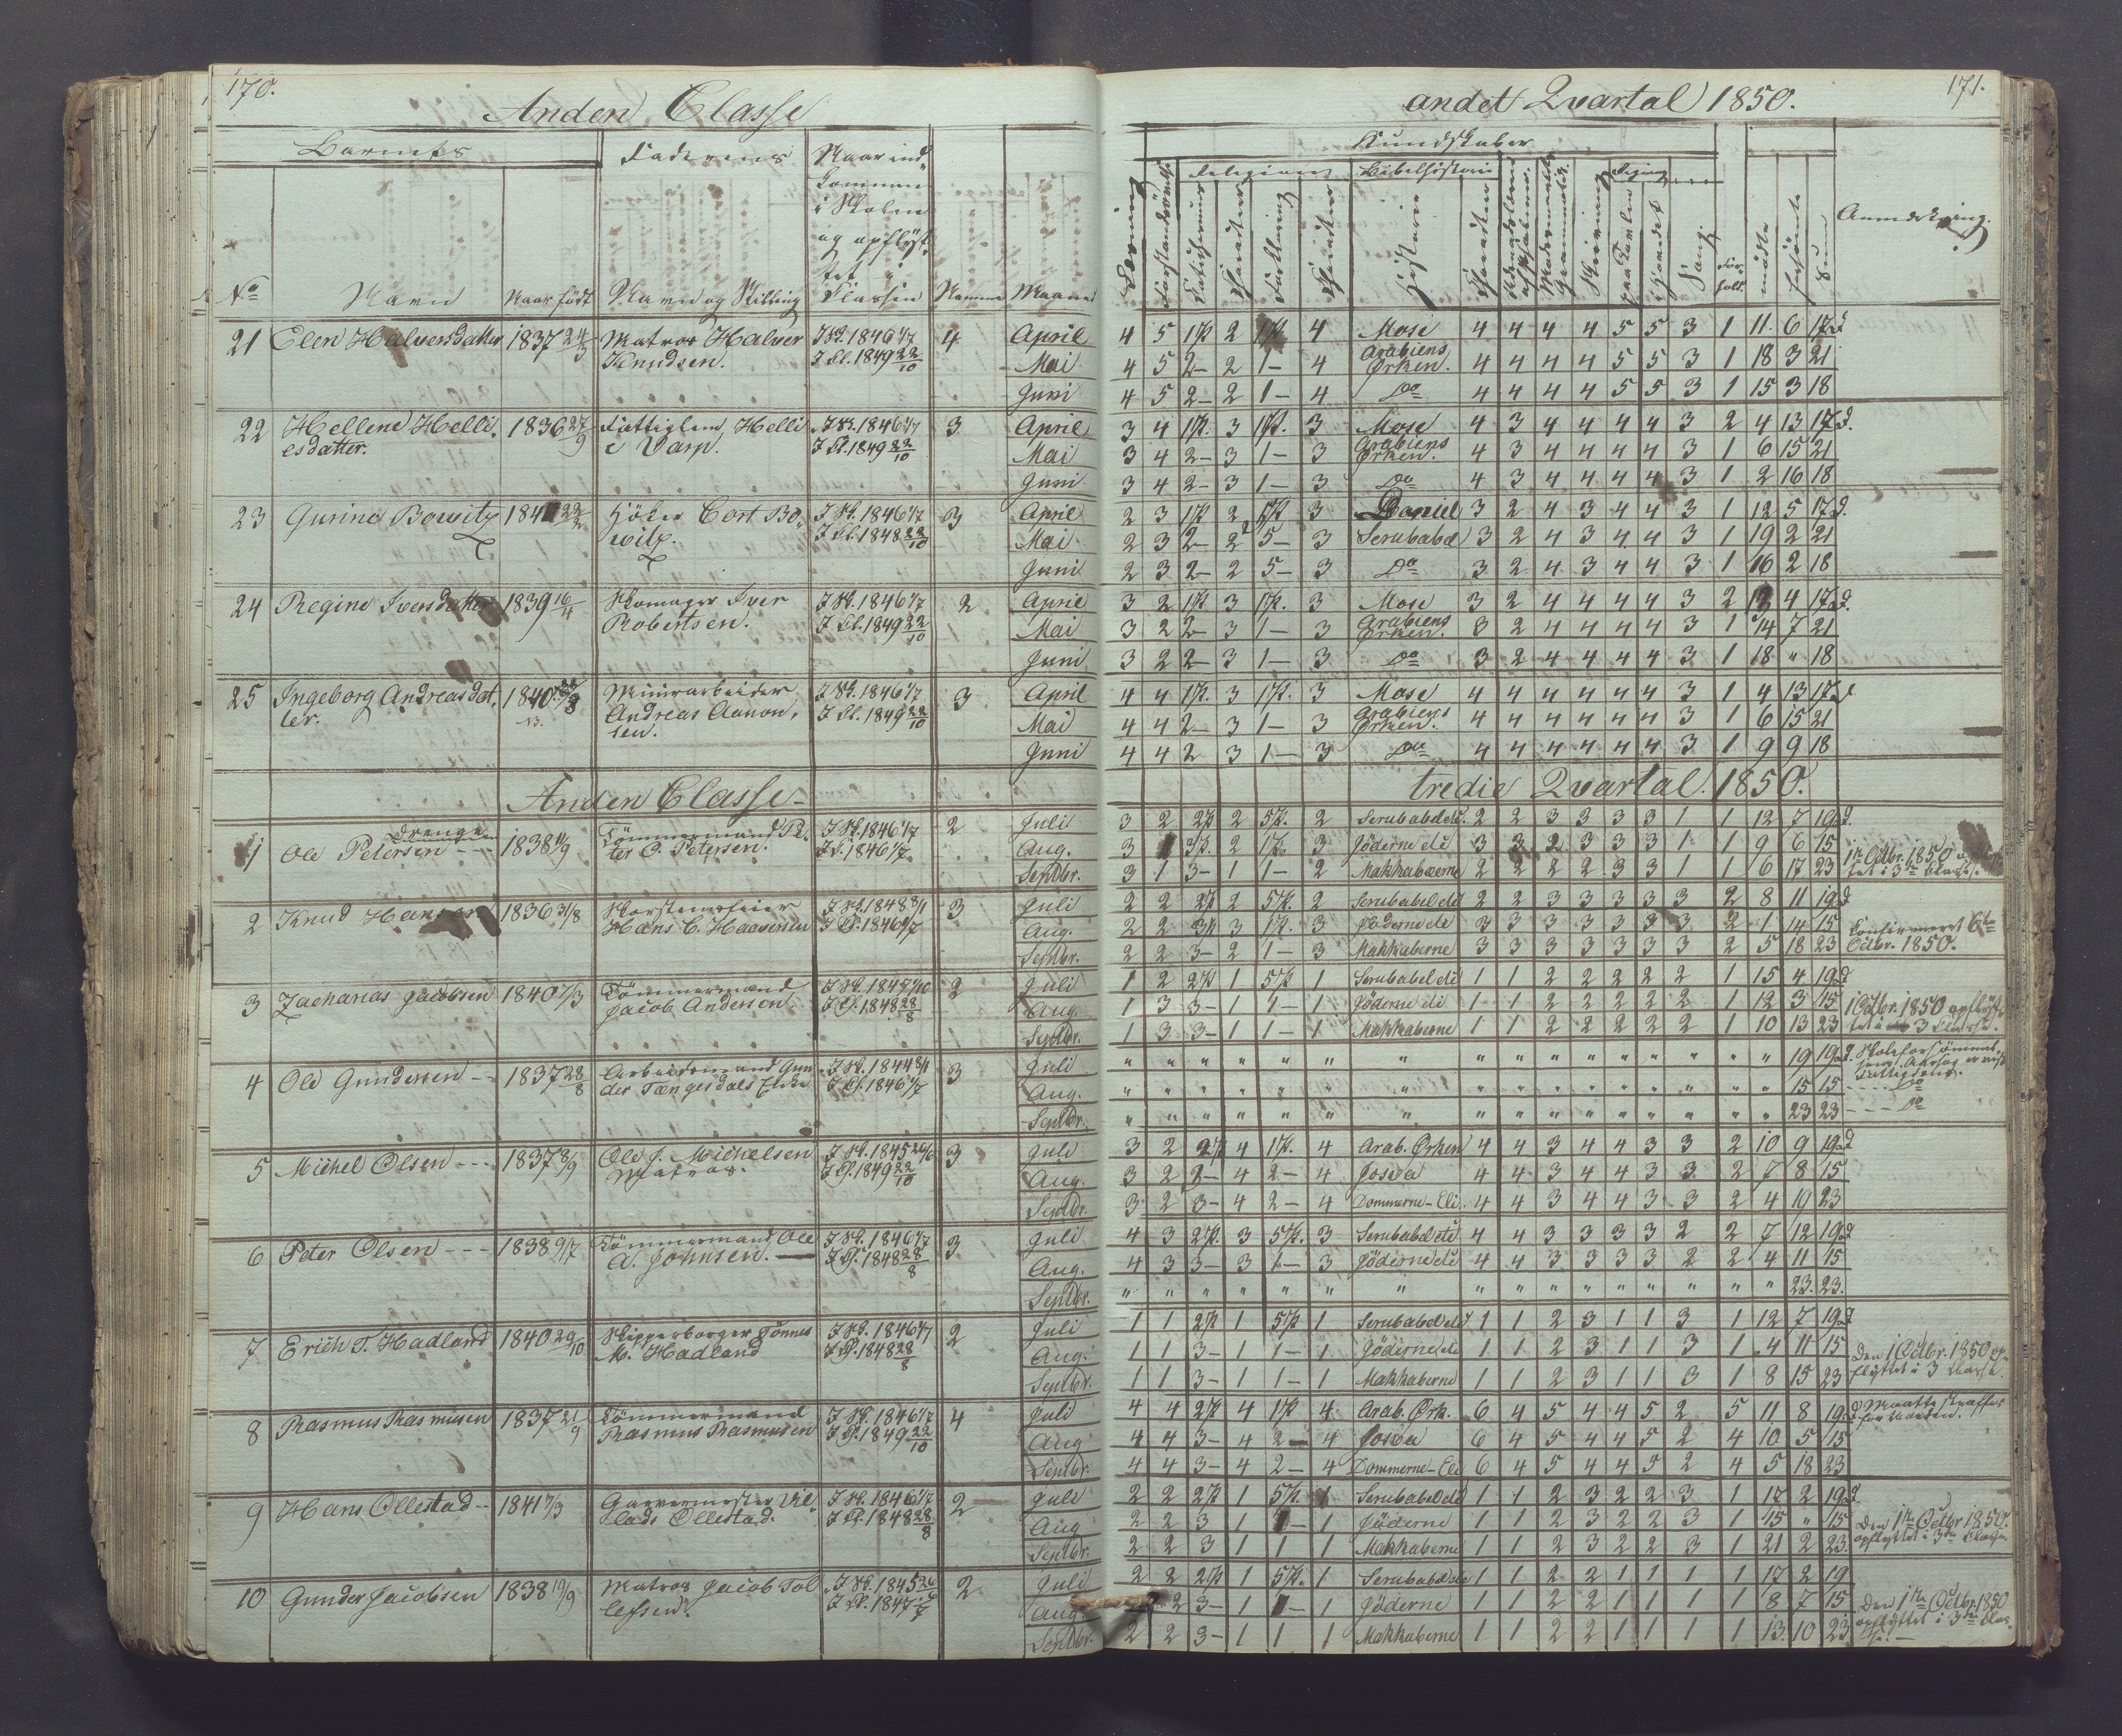 170.
Anden Classe
Barnets
Faderens
Naar ind
kommen
i Skolen
og opflyt
tet i
Classen
No
Navn
Naar født
Navn og Stilling
Nemme
Maaned
21 Elen Halversdatter 1837 24/3 Matros Halver I Sk. 1846 1/7 4 April
Knudsen. I Cl. 1849 22/10 Mai
Juni
22 Hellene Helli 1836 27/9 Fattiglem Helli I Sk. 1846 1/7 3 April
esdatter. e Varp. I Cl. 1849 22/10 Mai
Juni
23 Gurine Bowitz Höker Cort Bo I Sk. 1846 1/7 3 April
witz. I Cl. 1848 22/10 Mai
Juni
24 Regine Iversdatter 1839 16/4 Skomager Iver I Sk. 1846 1/7 2 April
Robertsen. I Cl. 1849 22/10 Mai
Juni
25 Ingeborg Andreasdat 1840 Muurarbeider I Sk. 1846 1/7 3 April
ter. Andreas Aanon I Cl. 1849 22/10 Mai
sen. Juni
Anden Classe
Drenge
1 Ole Petersen 1838 1/9 Tömmermand Pe I Sk. 1846 1/7 2 Juli
ter O. Petersen. I Cl. 1846 1/7 Aug.
Septbr.
2 Knud Hansen 1836 31/8 Skorsteensfeier 3 Juli
Hans C. Haavesen Aug.
Septbr.
3 Zacharias Jacobsen 1840 7/3 Tömmermand 2 Juli
Jacob Andersen. I Cl. 1848 28/8 Aug.
Septbr.
4 Ole Gundersen 1837 28/8 Arbeidsmand Gun 3 Juli
der Tængesdals Enke Aug.
Septbr.
5 Michel Olsen 1837 8/9 Ole J. Michelsen 3 Juli
Matros. I Cl. 1849 22/10 Aug.
Septbr.
6 Peter Olsen 1838 9/7 Tömmermand Ole I Sk. 1846 1/7 3 Juli
A. Johnsen. I Cl. 1848 28/8 Aug.
Septbr.
7 Erich T. Hadland 1840 29/10 Skipperborger Tönnes I Sk. 1846 1/7 2 Juli
M. Hadland I Cl. 1848 28/8 Aug.
Septbr.
8 Rasmus Rasmusen 1837 21/9 Tömmermand I Sk. 1846 1/7 4 Juli
Rasmus Rasmusen I Cl. 1849 22/10 Aug
Septbr.
9 Hans Ollestad 1841 7/3 Garvermester I Sk. 1846 1/7 2 Juli
Ollestad. I Cl. 1848 28/8 Aug
Septbr.
10 Gunder Jacobsen 1838 19/9 Matros Jacob Tol 2 Juli
lefsen. Aug
Septbr.
171.
andet Qvartal 1850.
Kundskaber
Religion
Bibelhistorie
Regning
Anmærkning.
4 5 1 P. 2 4 Mose 4 4 4 4 5 5 3 1 11 6 17 D
4 5 2 – 2 1 – 4 Arabiens Ørken. 4 4 4 4 5 5 3 1 18 3 21
4 5 2 – 2 1 – 4 Do 4 4 4 4 5 5 3 1 15 3 18
3 4 1 P. 3 1 P. 3 Mose 4 3 4 4 4 4 3 2 4 13 17 D.
3 4 2 – 3 1 – 3 Arabiens Ørken. 4 3 4 4 4 4 3 1 6 15 21
3 4 2 – 3 1 – 3 Do 4 3 4 4 4 4 3 1 2 16 18
2 3 1 P. 2 3 Daniel 3 2 4 3 4 4 3 1 12 5 17 D.
2 3 2 – 2 5 – 3 Serubabel 3 2 4 3 4 4 3 1 19 2 21
2 3 2 – 2 5 – 3 Do 3 2 4 3 4 4 3 1 16 2 18
3 2 1 P. 3 1 P. 3 Mose 3 2 4 4 4 4 3 2 13 4 17 D.
3 2 2 – 3 1 – 3 Arabiens Ørken. 3 2 4 4 4 4 3 1 14 7 21
3 2 2 – 3 1 – 3 Do 3 2 4 4 4 4 3 1 18 " 18
4 4 1 P. 3 1 P. 3 Mose 4 4 4 4 4 4 3 1 4 13 17 D
4 4 2 – 3 1 – 3 Arabiens Ørken. 4 4 4 4 4 4 3 1 6 15 21
4 4 2 3 1 – 3 Do 4 4 4 4 4 4 3 1 9 9 18
tredie Qvartal. 1850.
3 2 2 P. 2 5 P. 2 Serubabel etc. 2 2 3 3 3 3 1 1 12 7 19 D.
3 3 P. 2 1 P. 3 Jöderne etc 3 3 2 3 3 3 1 1 9 6 15
3 1 3 – 1 1 – 2 Makkabæerne 2 2 2 2 3 3 1 1 6 17 23 1te Octbr. 1850
tet i 3die Classe.
2 2 2 P. 2 5 P. 2 Serubabel etc 2 2 3 3 3 3 3 2 8 11 19 D
2 2 3 P. 3 1 P. 3 Jöderne etc 3 3 3 3 3 3 3 2 1 14 15 Confirmeret 6te
2 2 3 – 2 1 – 3 Makkaberne 3 3 3 3 3 3 3 2 5 18 23 Octbr. 1850.
1 2 2 P. 1 5 P. 1 Serubabel etc 1 1 2 2 2 2 2 1 15 4 19 D
1 3 3 – 1 1 – 1 Jöderne etc 1 1 2 2 2 2 2 1 12 3 15 1 Octbr. 1850 opflyt
1 3 3 – 1 1 – 1 Makkaberne 1 1 2 2 2 2 2 1 10 13 23 tet i 3 Classe.
" " " " " " " " " " " " " " " " 19 19 D. Skoleforsömmel
" " " " " " " " " " " " " " " " 15 15 Do
" " " " " " " " " " " " " " " " 23 23 Do
3 2 2 P. 4 1 P. 4 Arab. Ørken 4 4 3 4 4 3 3 2 10 9 19 D
3 2 2 – 4 2 – 4 Josva 4 4 3 4 4 3 3 2 7 8 15
3 2 3 – 4 2 – 4 Dommerne – Eli. 4 4 3 4 4 3 3 2 4 19 23
4 3 2 P. 3 5 P. 3 Serubabel etc 4 4 3 3 3 3 2 2 7 12 19 D
4 3 3 – 3 1 – 3 Jöderne etc 4 4 3 3 3 3 2 2 4 11 15
" " " " " " " " " " " " " " " " 23. 23.
1 1 2 P. 1 5 P. 1 Serubabel etc 1 1 2 3 1 1 3 1 12 7 19 D
1 1 3 – 1 1 – 1 Jöderne etc 1 1 2 3 1 1 3 1 4 11 15 Den 1 Octbr. 1850 op
1 1 3 – 1 1 – 1 Makkaberne 1 1 2 3 1 1 3 1 8 15 23 flyttet i 3 Classe.
4 4 2 P. 4 1 P. 4 Arab. Ørk. 6 4 5 4 4 5 2 5 11 8 19 D Maatte straffes
4 4 3 – 4 2 – 4 Josva 6 4 5 4 4 5 2 4 10 5 15
4 4 3 – 4 2 – 4 Dommerne – Eli 6 4 5 4 4 5 2 4 5 18 23
2 2 2 P. 1 5 P. 1 Serubabel etc 1 1 2 3 2 2 3 1 17 2 19 D
2 2 3 1 1 – 1 Jöderne 1 1 2 3 2 2 3 1 15 " 15 Den 1te Octbr 1850
2 2 3 1 1 1 Makkaberne 1 1 2 3 2 2 3 1 21 2 23. opflyttet i 3die Classe
2 2 2 P. 1 5 P. 1 Serubabel etc 1 1 2 2 1 1 1 1 17 2 19
2 3 – 1 1 – 1 Jöderne 1 1 2 2 1 1 1 1 8 7 15 Den 1te Octbr. 1850
2 2 3 – 1 1 1 Makkaberne 1 1 2 2 1 1 1 1 13 10 23 opflyttet i 3die Clas
se. –